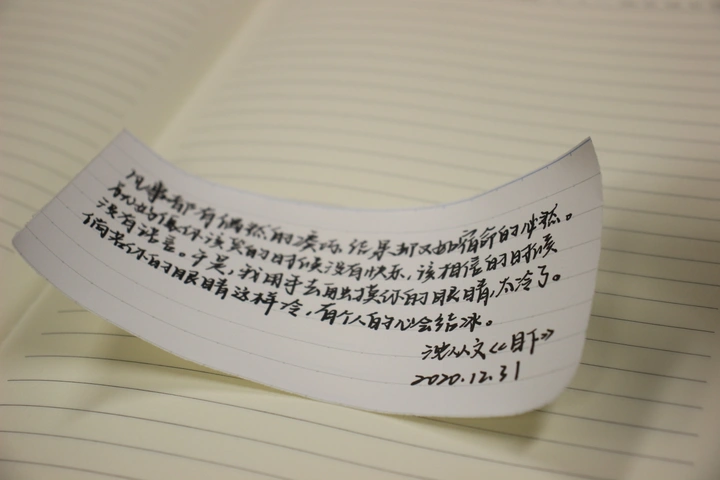 凡事都有偶然的凑巧,结果却又如宿命的必然。
你该笑的时候没有快乐,该相信的时候
没有诺言。于是,我用手去触摸你的眼睛,太冷了。
倘若你的眼睛这样冷,有个人的心会结冰。
沈从文《月下》
2020.12.31